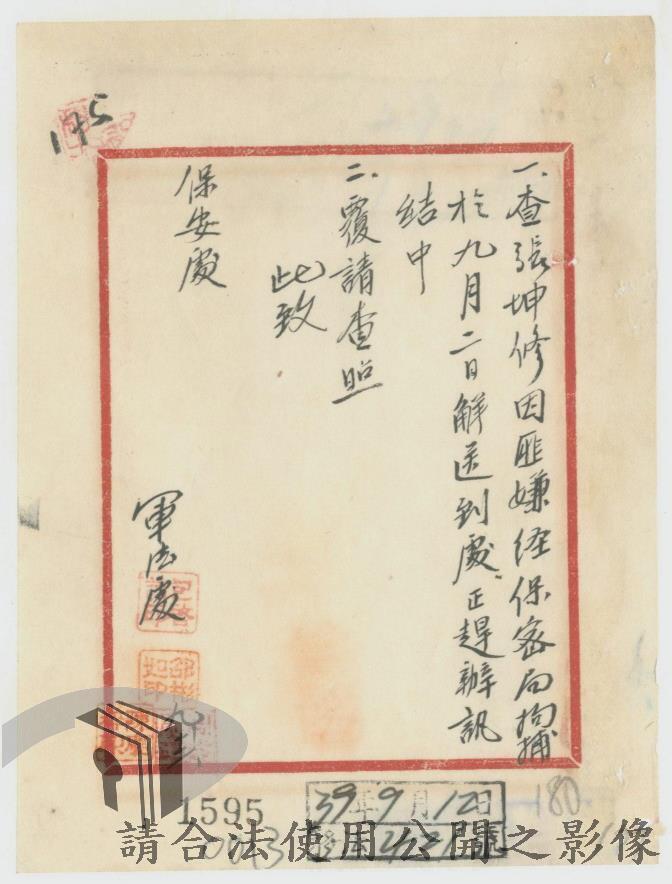 一、查張坤修因匪嫌經保密局拘捕
於九月二日解送到處正趕辦訊
結中
二、覆請查照
此致
保安處
軍法處
1595
39年9月12日
180
請合法使用公開之影像